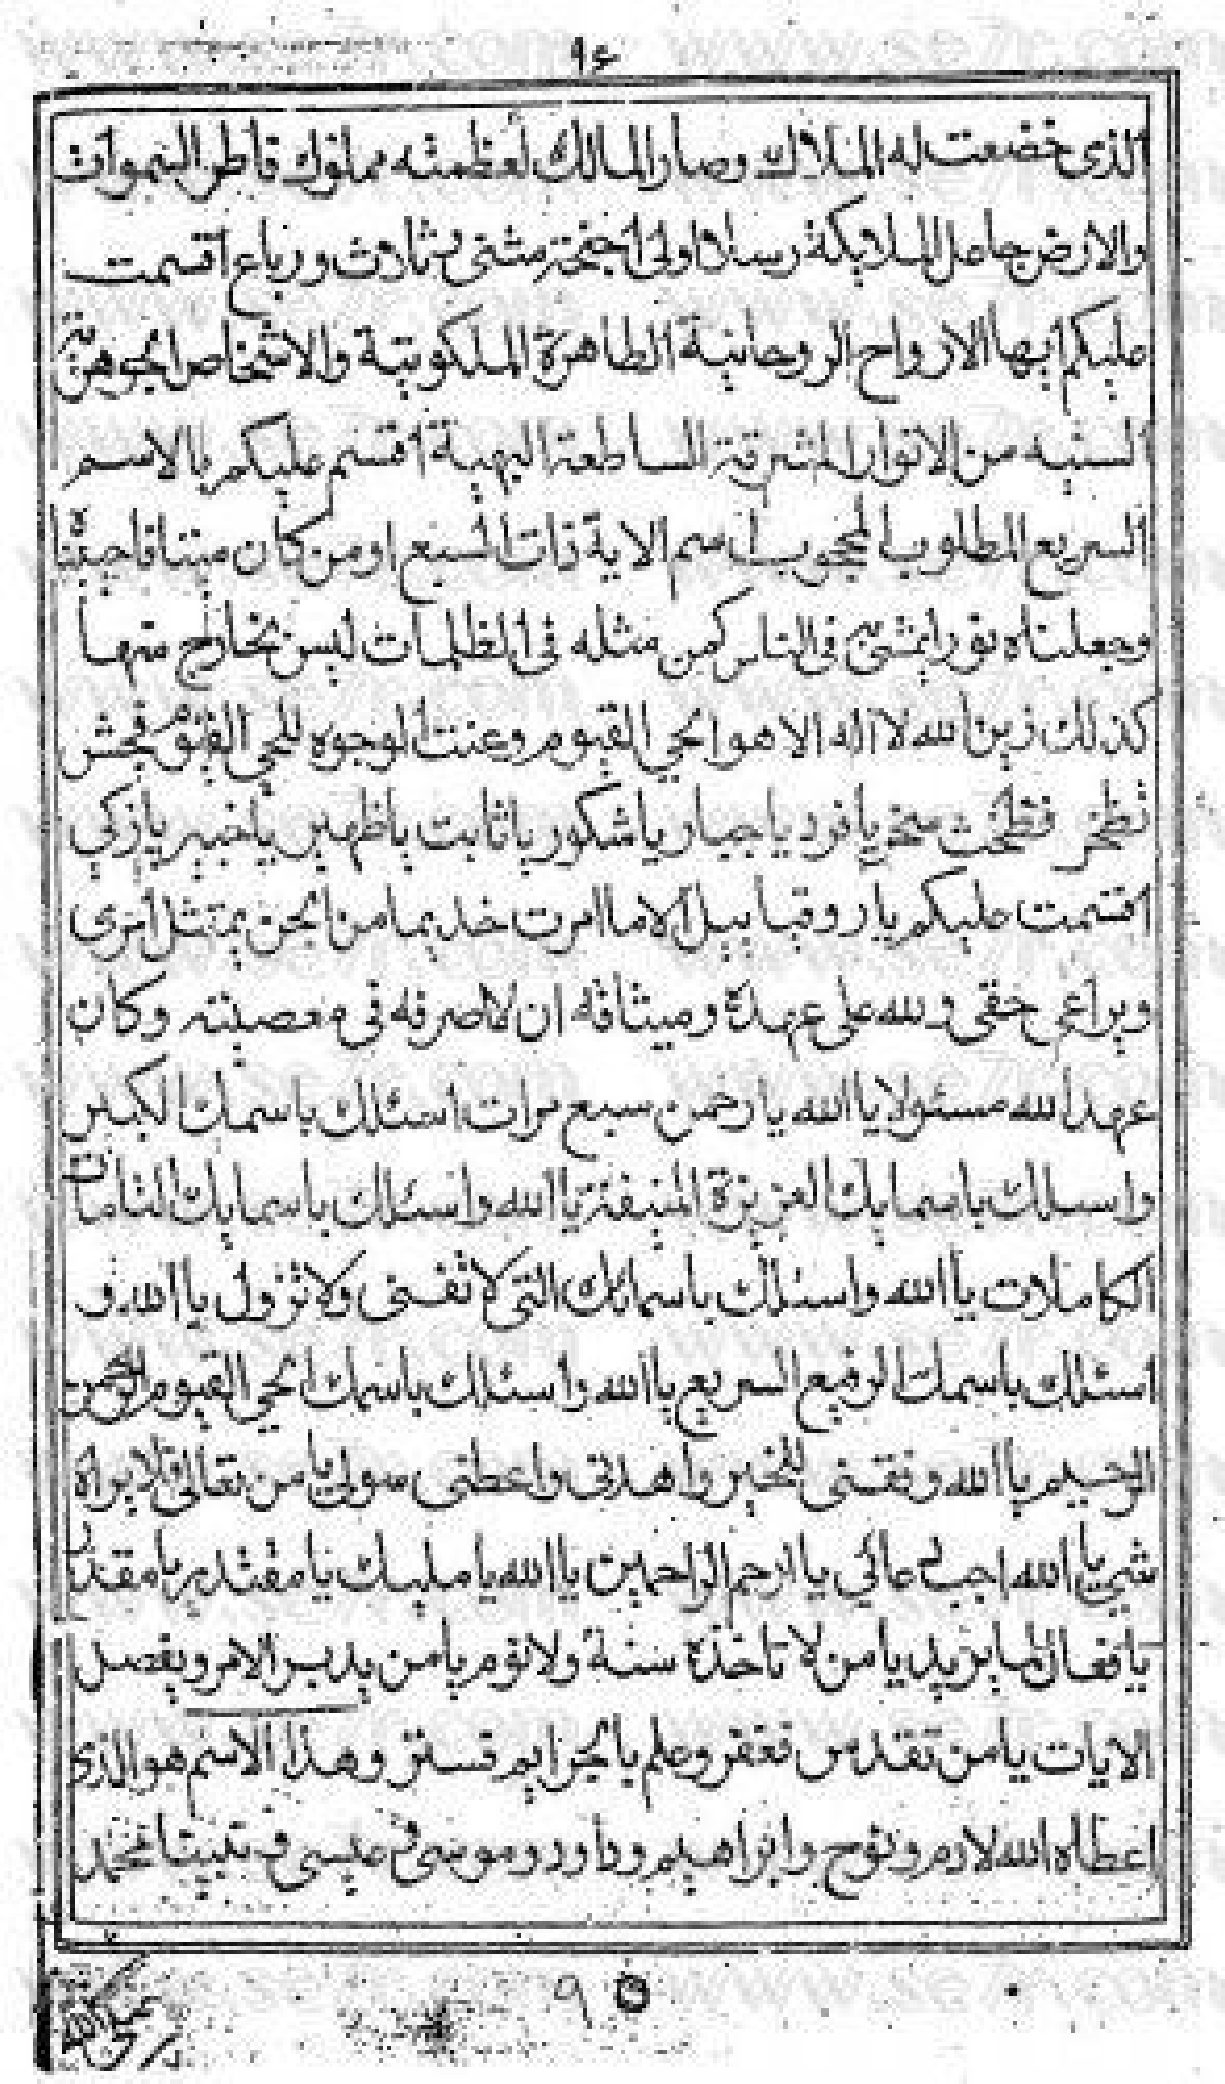 ٩٤
الذى خضعت له الملاك وصار المالك لعظمته مملوك فاطر السموات
والارض جاعل الملايكة رسلا اولى اجنحة مثنى وثلاث ورباع اقسمت
عليكم ايها الارواح الروحانية الطاهرة الملكوتية والاشخاص الجوهرية
السنيه من الانوار المشرقة الساطعة البهية اقسم عليكم بالاسم
السريع المطلوب المحجوب اسم الاية ذات السبع اومن كان ميتا فاحييناه
وجعلناه نورا يمشى فى الناس كمن مثله فى الظلمات ليس بخارج منها
كذلك زين الله لا اله الا هو الحي القيوم وعنت الوجوه للحي القيوم فجش
يا فرد يا جبار يا شكور يا ثابت يا ظهير يا خبير يا زكي
اقسمت عليكم يا روقيابيل الا ما امرت خديما من الجن يمتثل امرى
ويراعى حقى ولله على عهده وميثاقه ان لا اصرفه فى معصيته وكان
عهد الله مسئولا يا الله يا رحمن سبع مرات اسئلك باسمك الكبير
واسلك باسمايك العزيزة المنيفة يا الله واسئلك باسمايك التامات
الكاملات يا الله واسئلك باسمائك التى لا تفنى ولا تزول يا الله و
اسئلك باسمك الرفيع السريع يا الله واسئلك باسمك الحي القيوم الرحمن
الرحيم يا الله وفقنى للخير واهدنى واعطنى سولى يا من تعالى فلا يراه
شي يا الله اجب دعائي يا ارحم الراحمين يا الله يا مليك يا مقتدر يا مقدر
يا فعال لما يريد يا من لا تاخذه سنة ولا نوم يا من يدبر الامر ويفصل
الايات يا من تقدس فغفر وعلم بالجرايم فستر وهذا الاسم هو الذى
اعطاه الله لادم ونوح وابراهيم وداود وموسى وعيسى و نبينا محمد
٩٥